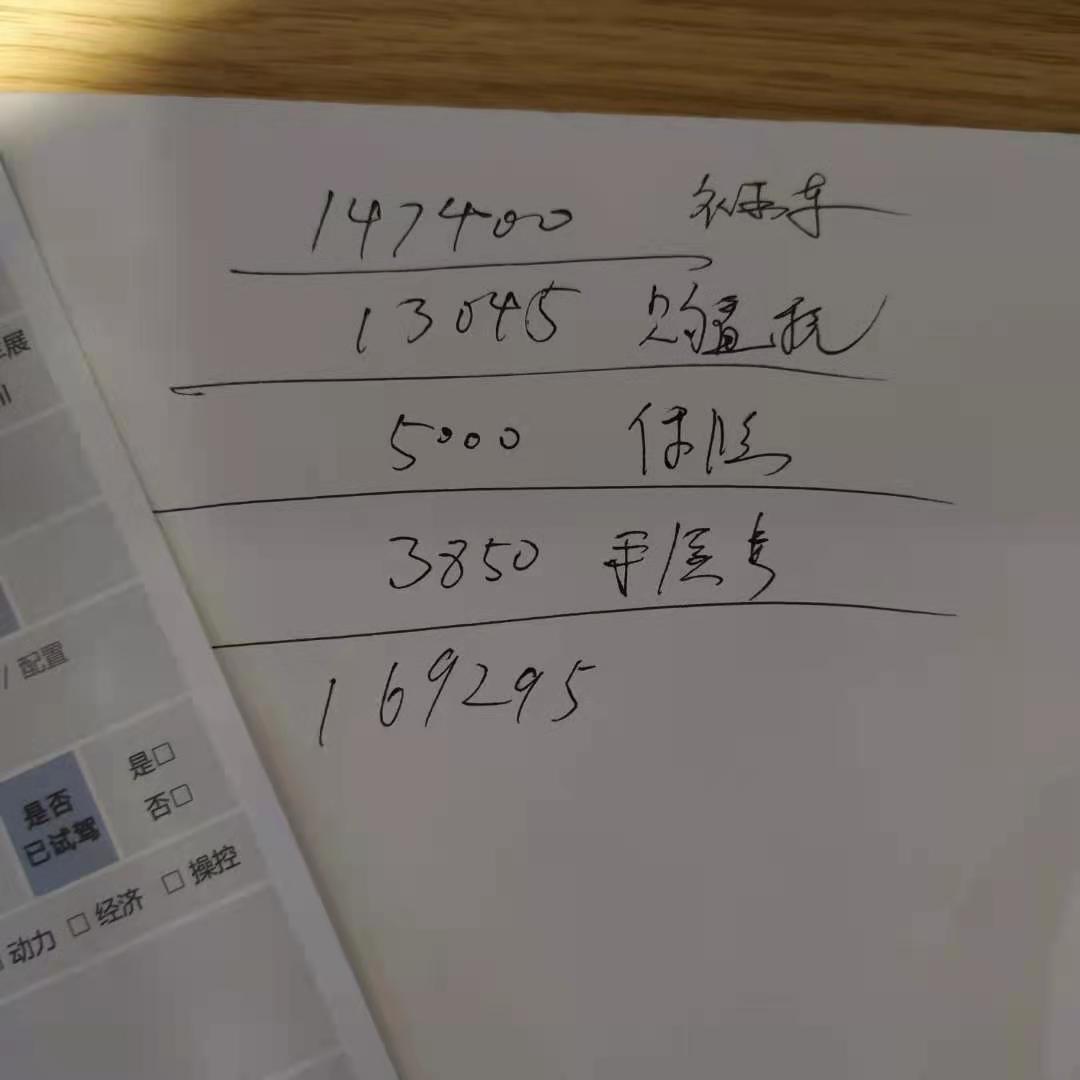 147400 裸车
13045 购置税
5000 保险
3850
169295
展
/ 配置
是□
否□
是否
已试驾
动力 □ 经济 □ 操控